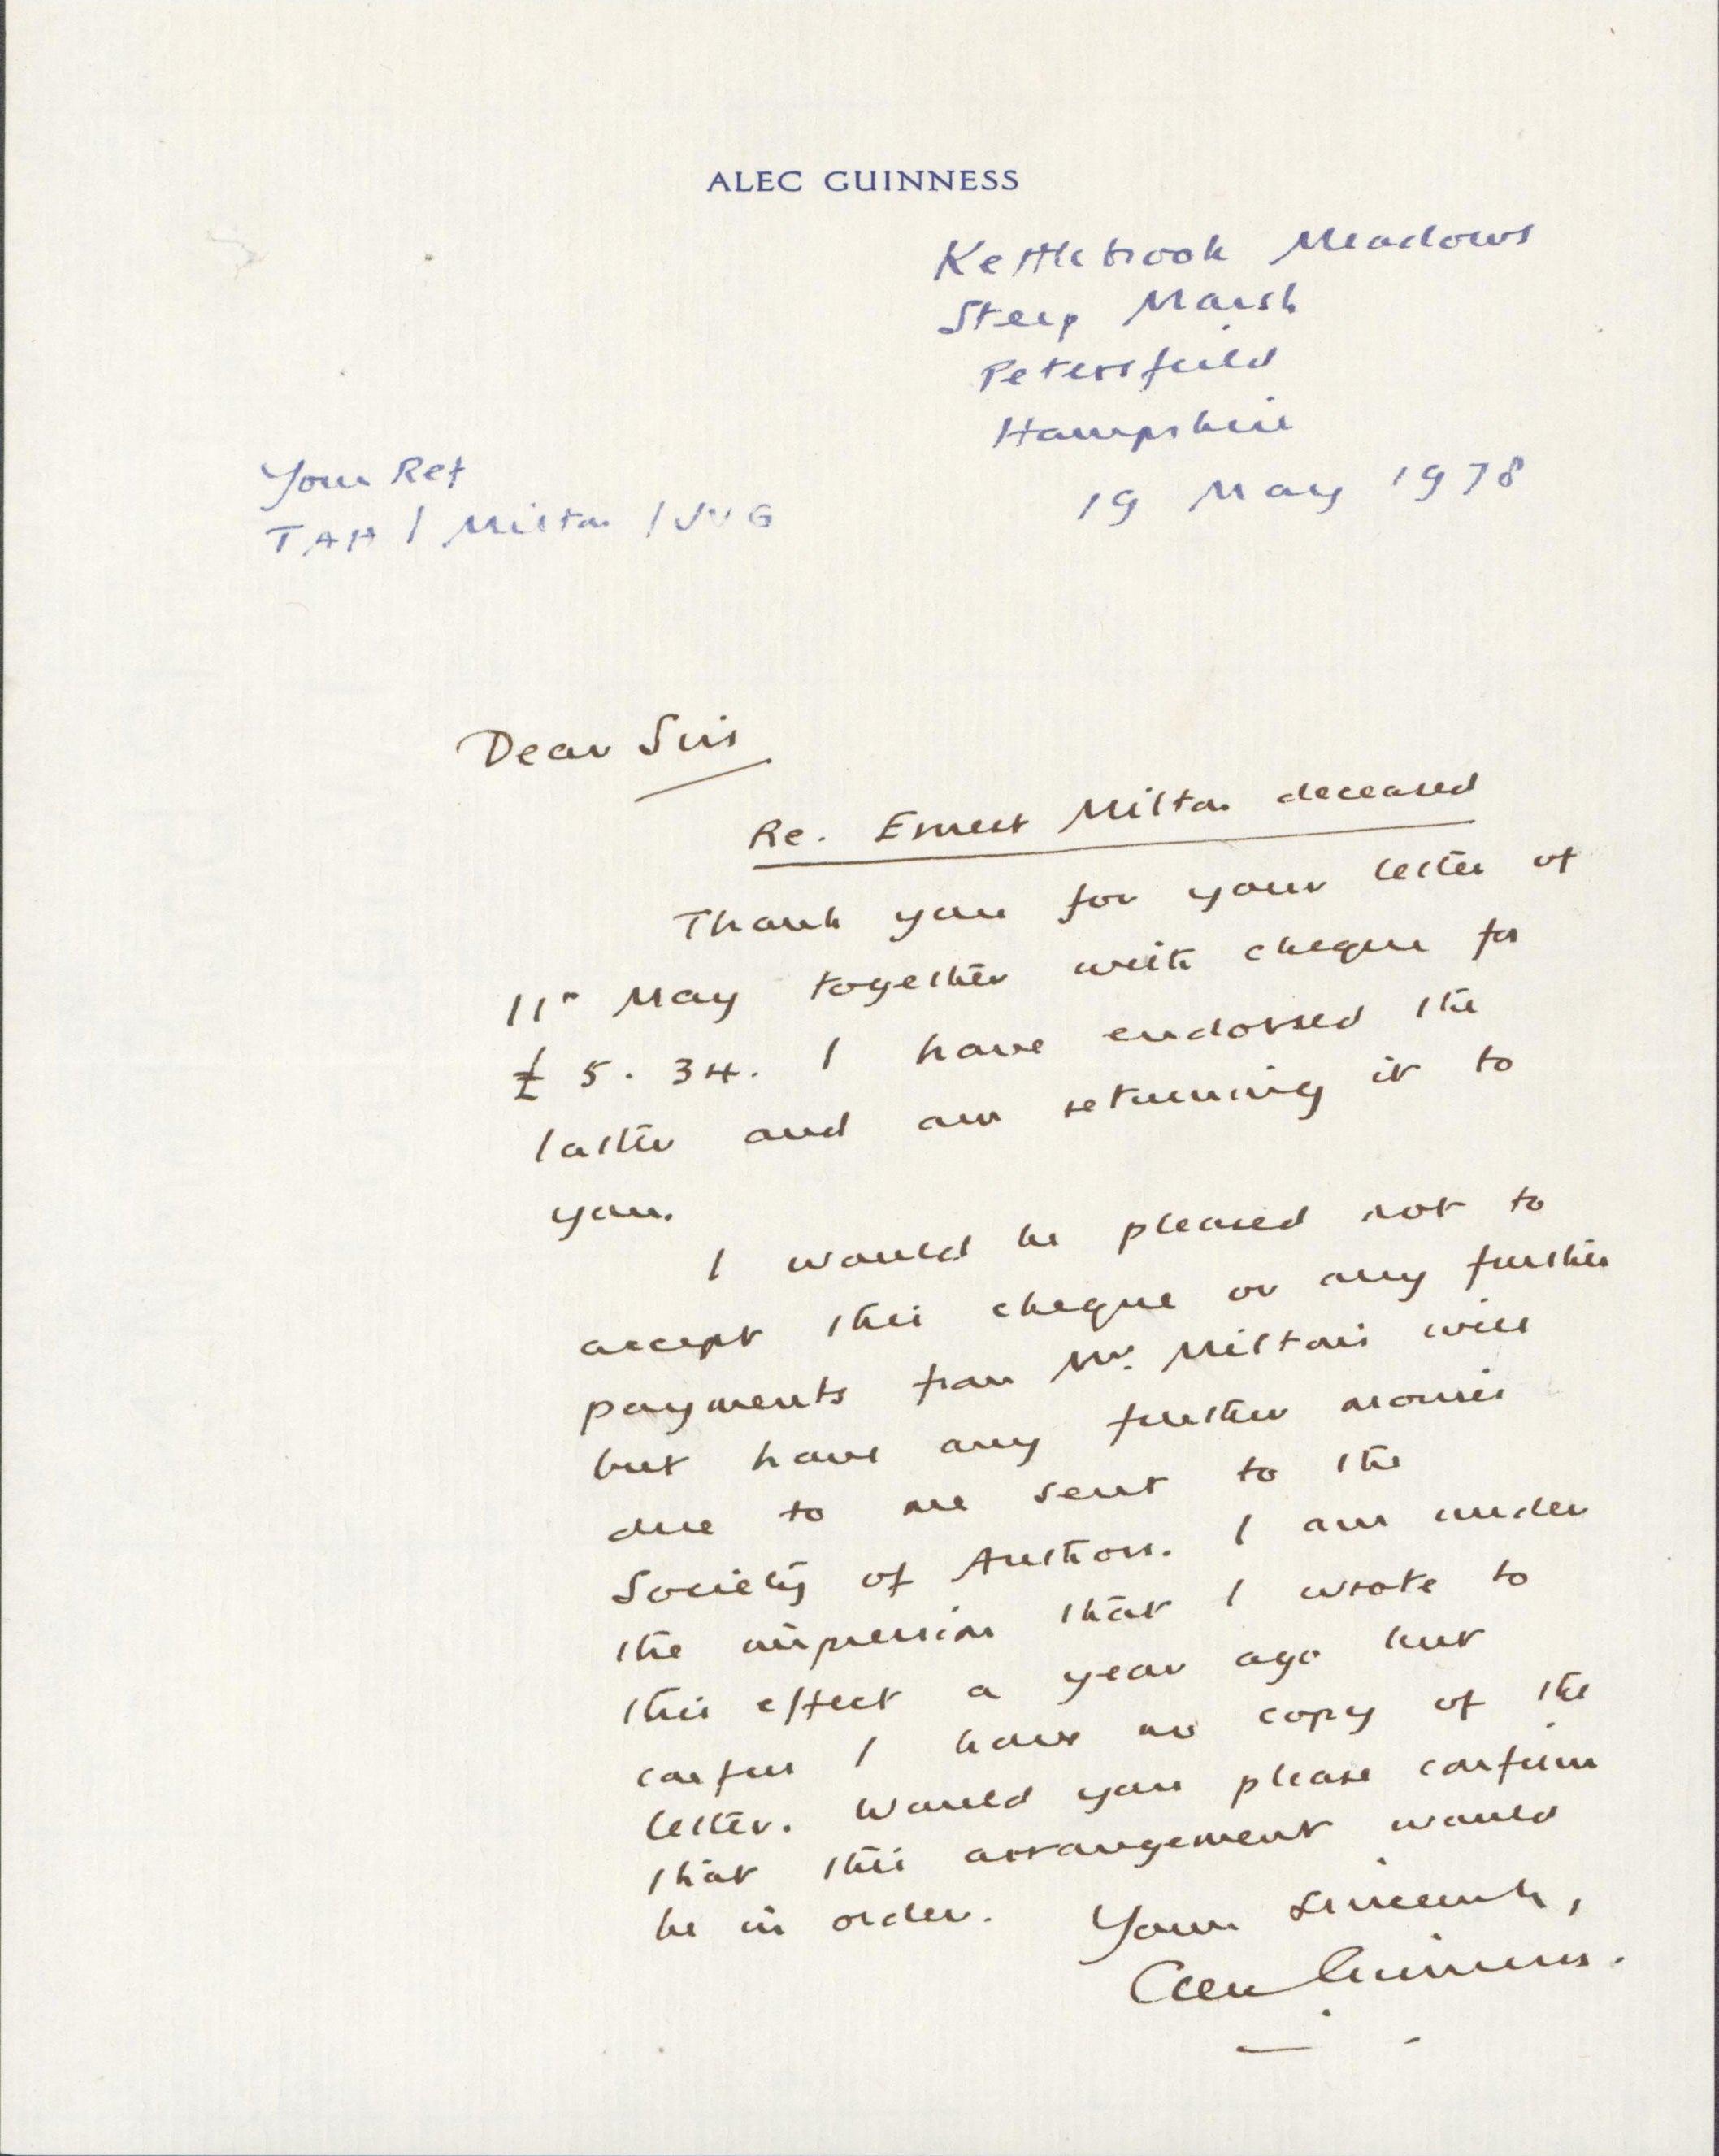 ALEC GUINNESS
Kettlebrook Meadows
Steep Marsh
Petersfield
Hampshire
19 May 1978
Your Ref
TAH / Milton / JVG
Dear Sirs
Re. Ernest Milton deceased
Thank you for your letter of
11th May together with cheque for
£ 5. 34. I have endorsed the
latter and am returning it to
you.
I would be pleased not to
accept this cheque or any further
payments from Mr. Milton's will
but have any further monies
due to me sent to the
Society of Authors. I am under
the impression that I wrote to
this effect a year ago but
confess I have no copy of the
letter. Would you please confirm
that this arrangement would
be in order.
Yours sincerely,
Alec Guinness.